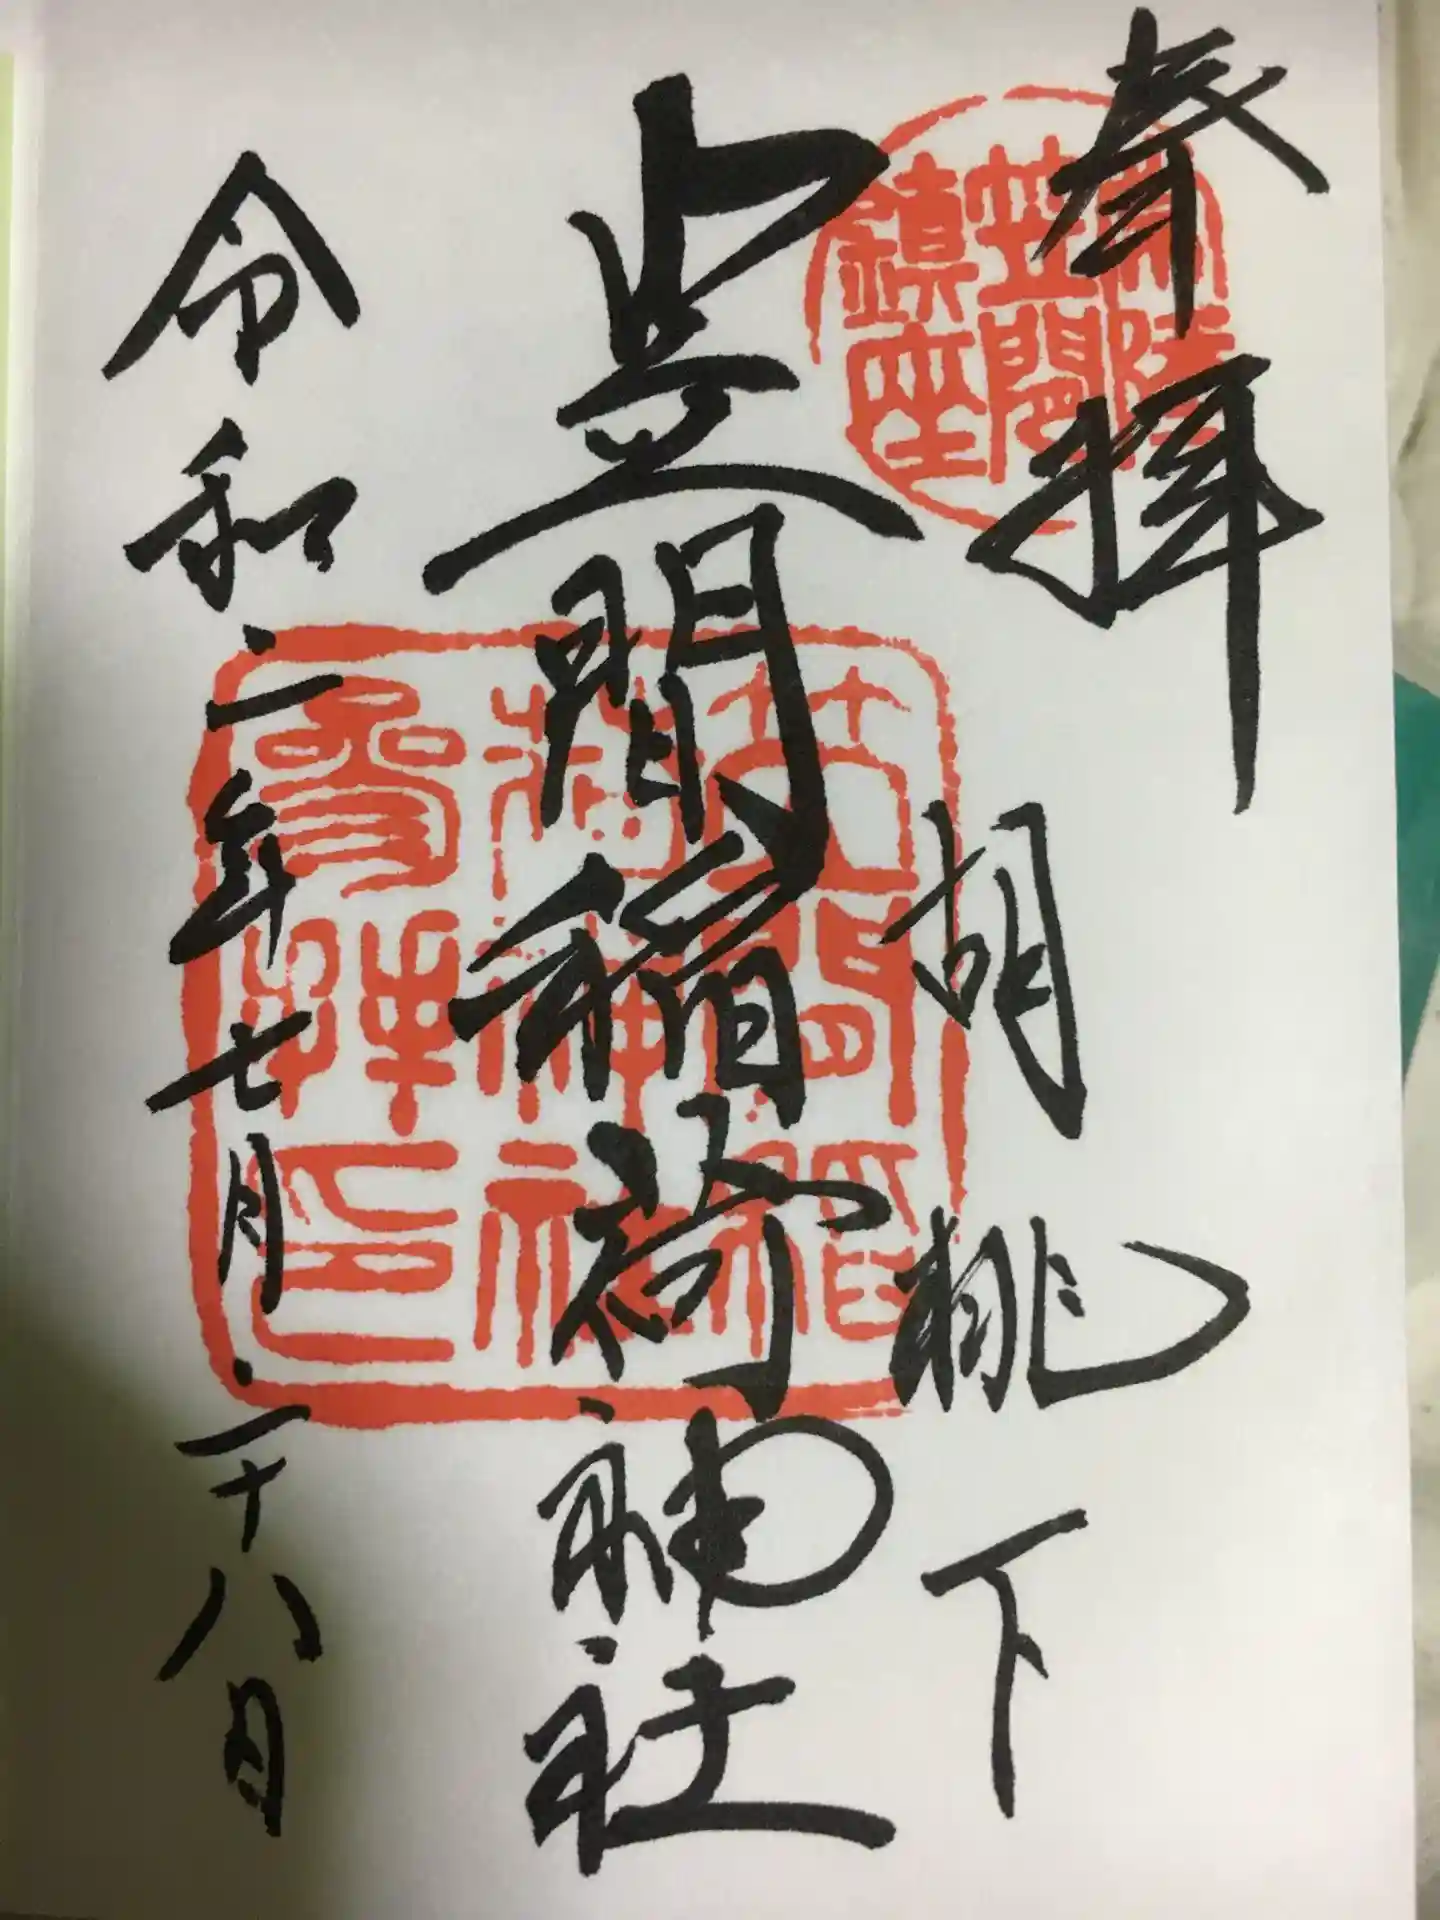 奉拝
胡桃下
笠間稲荷神社
令和二年七月二十八日
常陸
笠間
鎮座
笠間稲
荷神社
参拝印